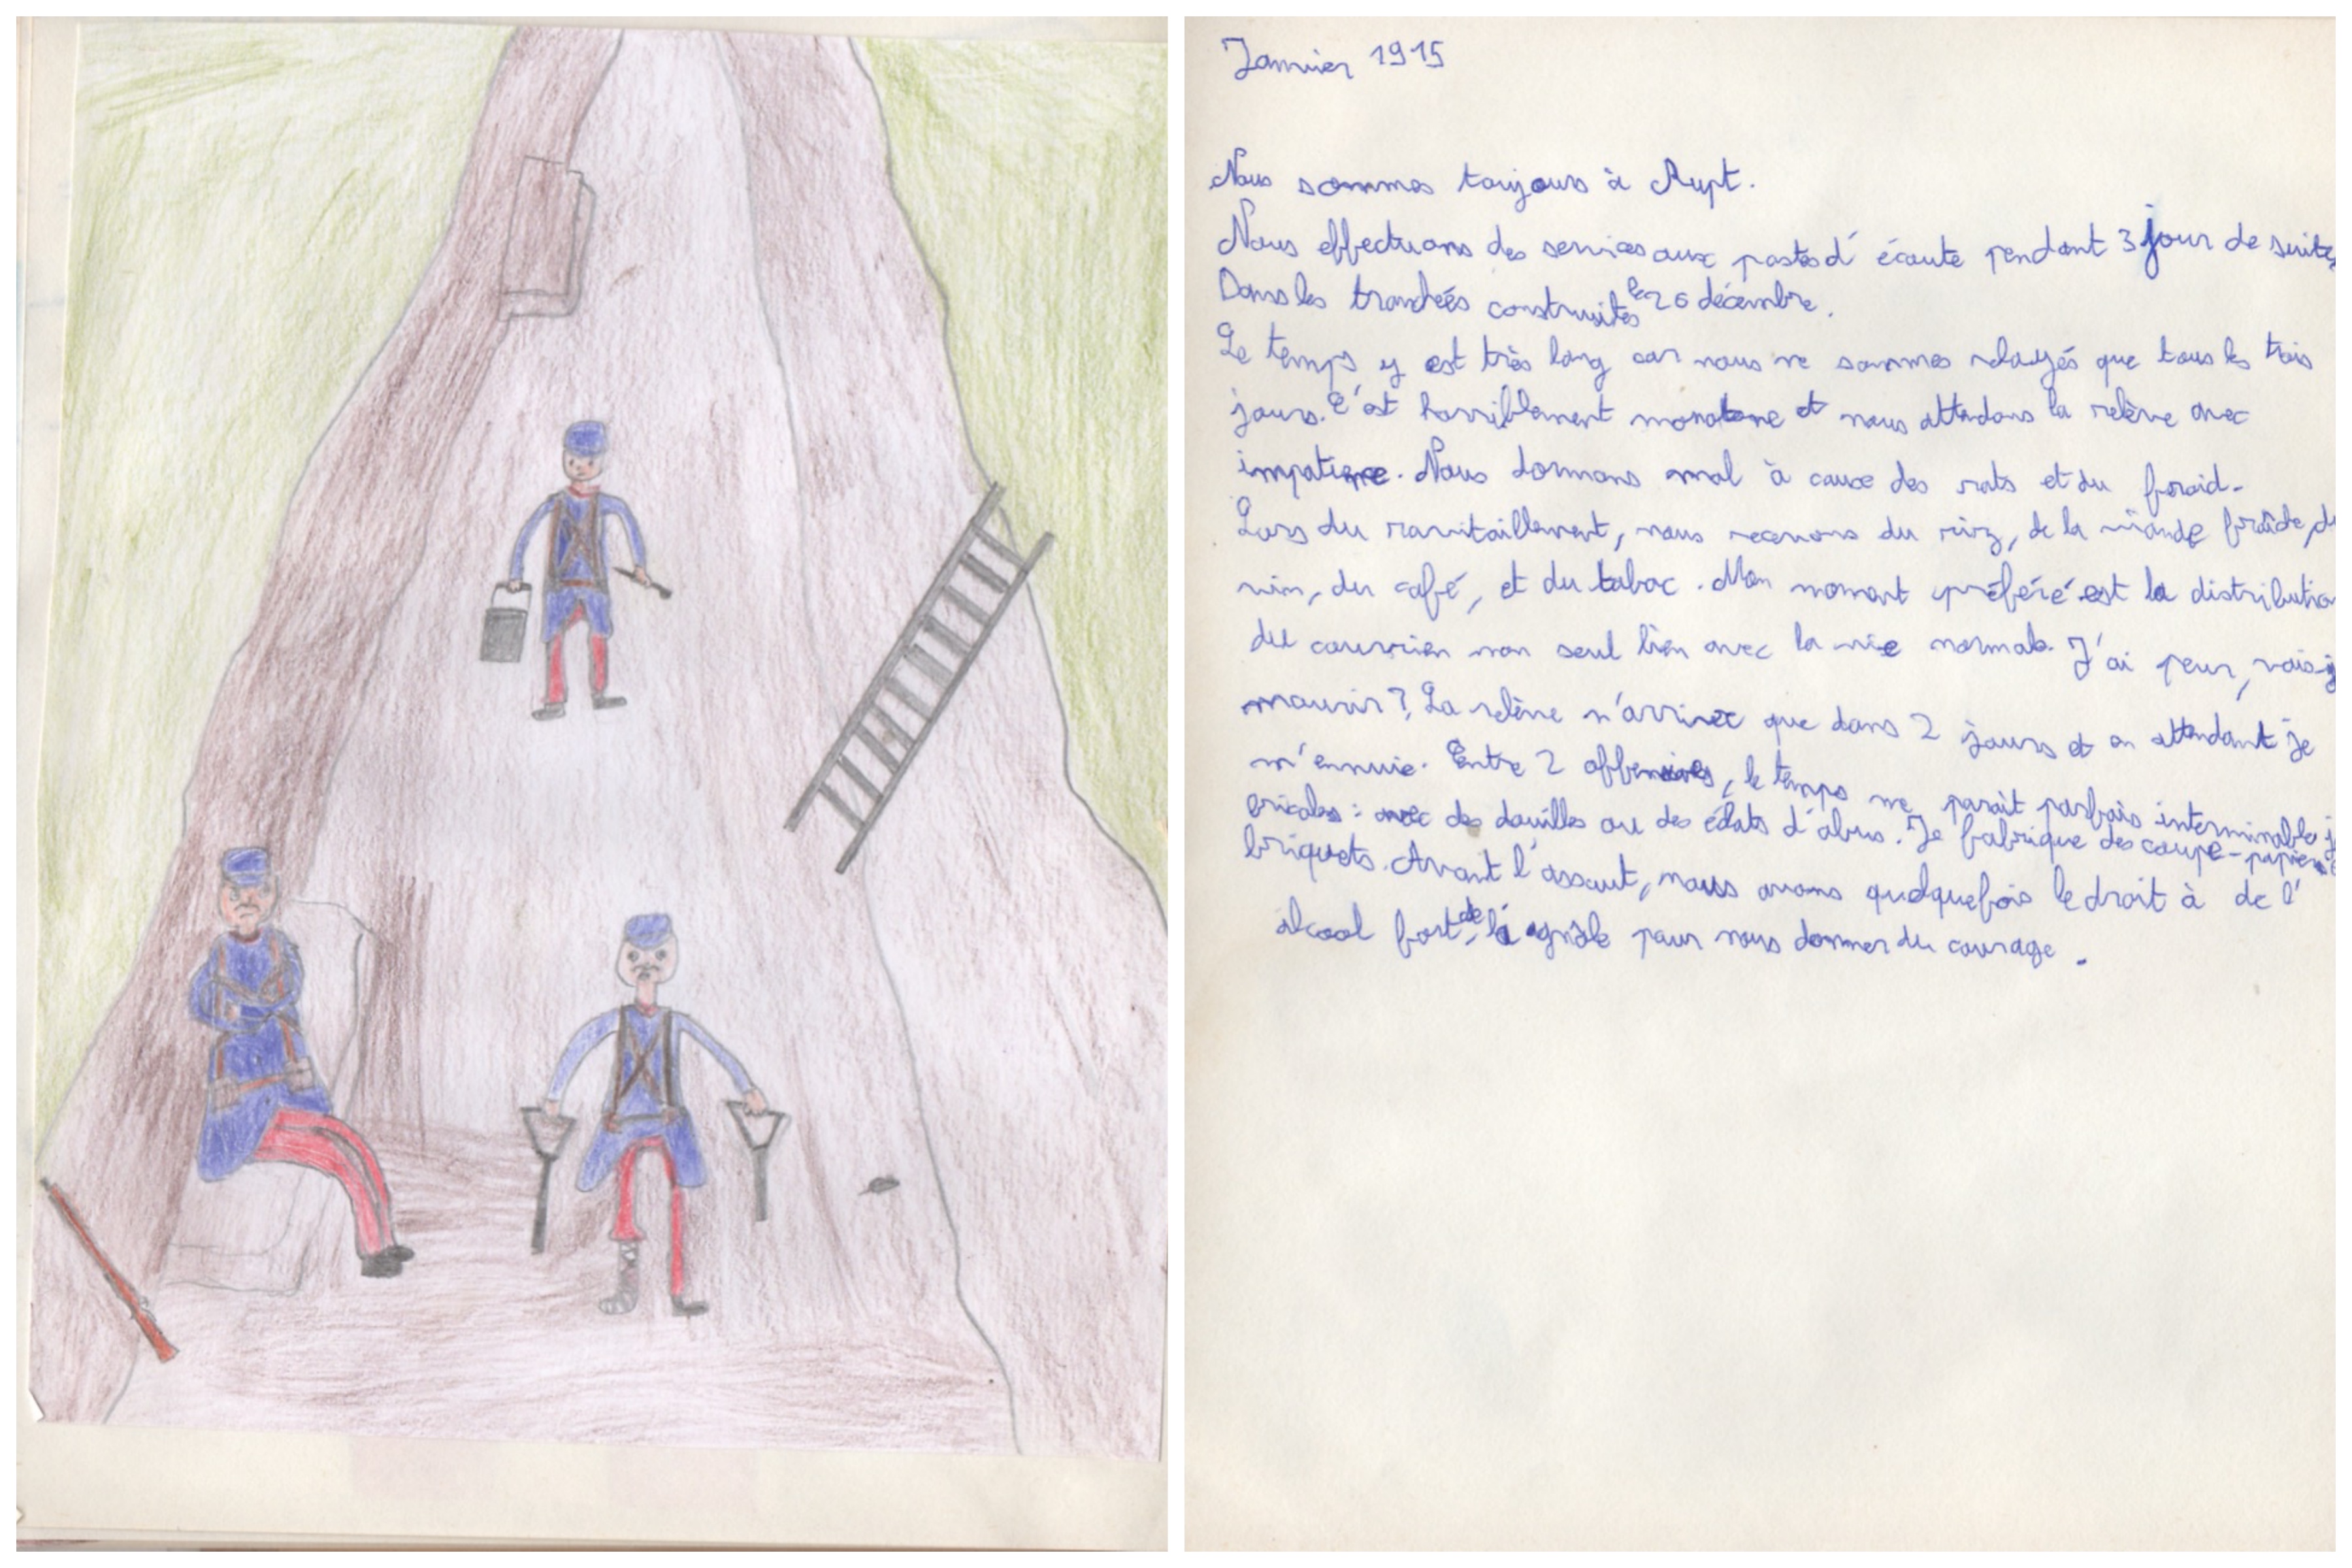 Janvier 1915
Nous sommes toujours à Rupt.
Nous effectuons des services aux postes d'écoute pendant 3 jour de suite,
Dans les tranchées construites le 26 décembre.
Le temps y est très long car nous ne sommes relayés que tous les trois
jours. C'est horriblement monotone et nous attendons la relève avec
impatience. Nous dormons mal à cause des rats et du froid.
Lors du ravitaillement, nous recevons du riz, de la viande froide, du
vin, du café, et du tabac. Mon moment préféré est la distribution
du courrier mon seul lien avec la vie normale. J'ai peur, vais-j
mourir ? La relève n'arrive que dans 2 jours et en attendant je
m'ennuie. Entre 2 offensives, le temps me parait parfois interminable j
bricoles : avec des douilles ou des éclats d'abus. Je fabrique des coupe-papiers
briquets. Avant l'assaut, nous avons quelquefois le droit à de l'
alcool fort, de la agnole pour nous donner du courage.